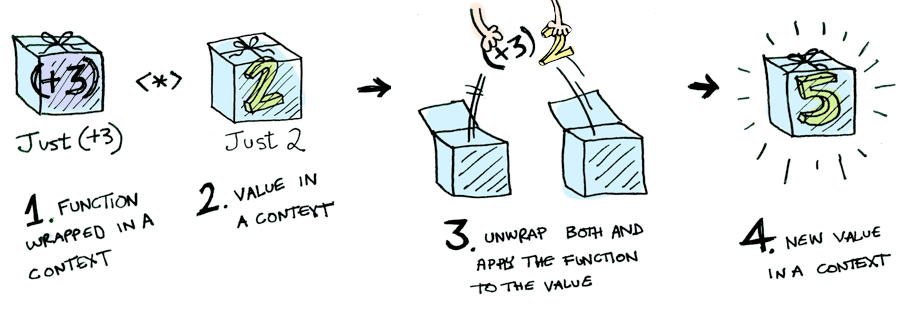 (+3)
<*>
2
Just (+3)
Just 2
1. FUNCTION
WRAPPED IN A
CONTEXT
2. VALUE IN
A CONTEXT
(+3) 2
3. UNWRAP BOTH AND
APPLY THE FUNCTION
TO THE VALUE
5
4. NEW VALUE
IN A CONTEXT